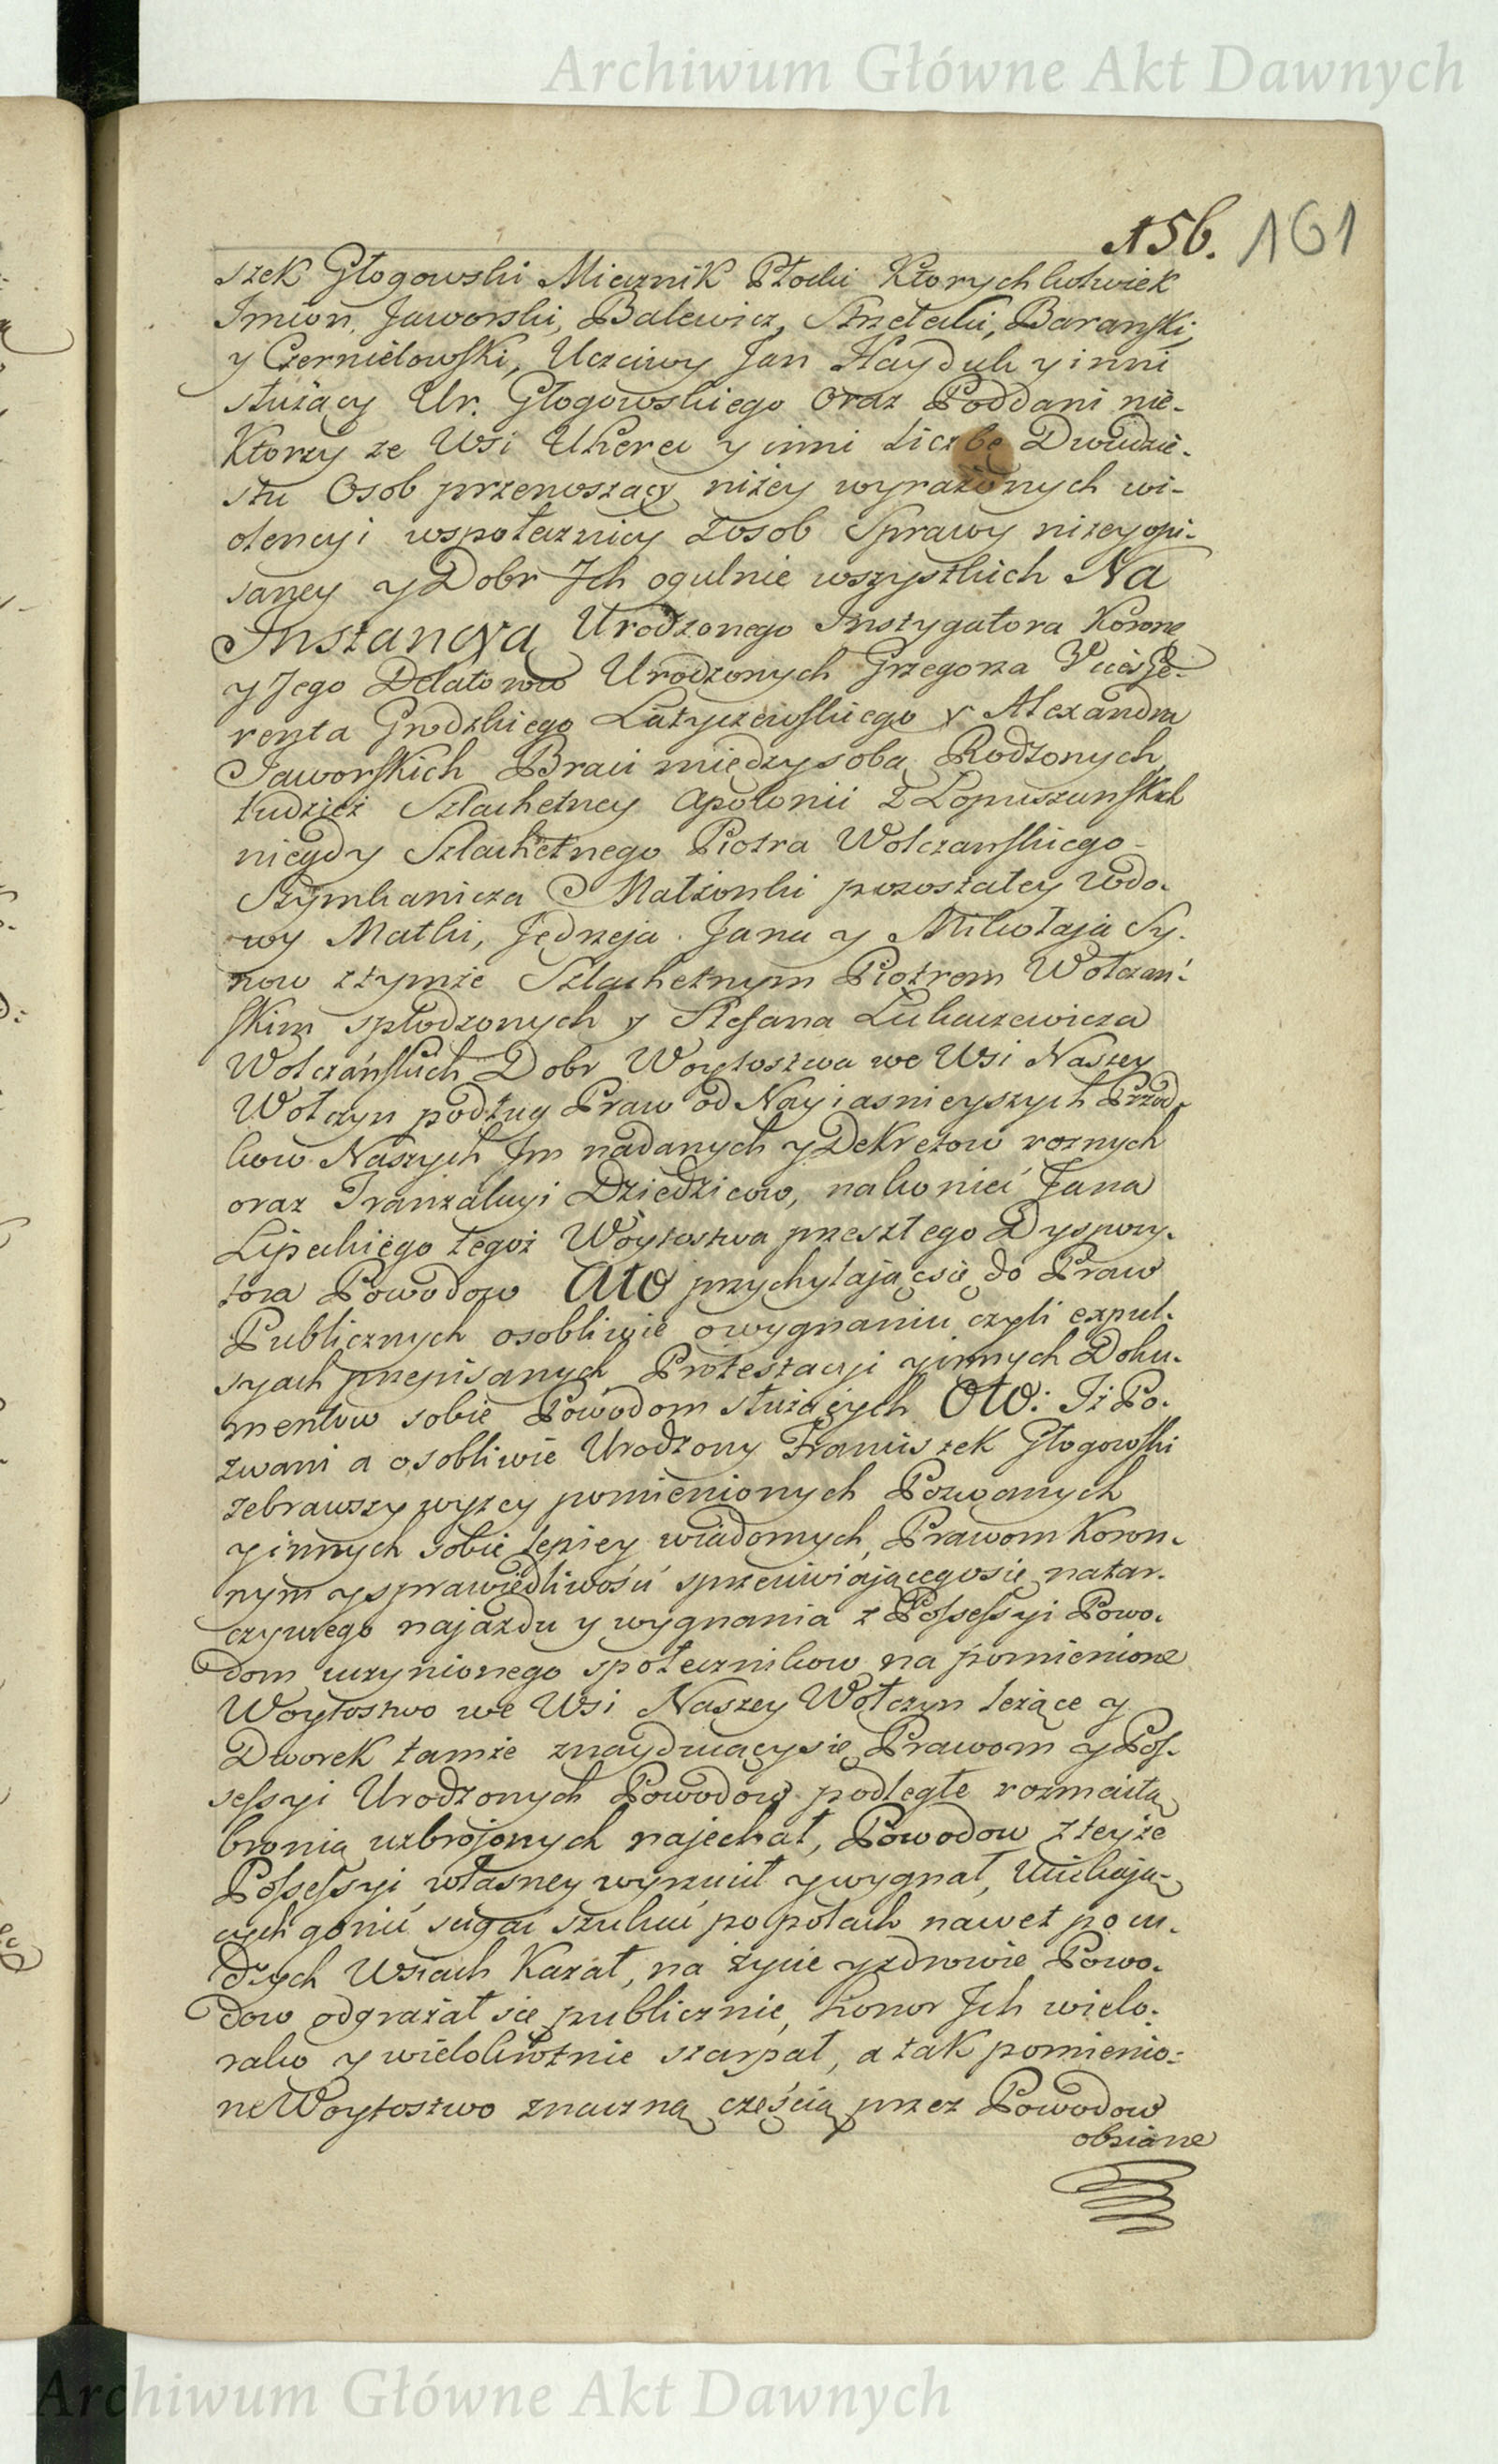 Archiwum Główne Akt Dawnych
156. 161
szek Głogowski Miecznik Płocki Ktorychkolwiek
Imion, Jaworski, Balewicz, Strzelecki, Baranski,
y Czernielowski, Uczciwy Jan Hayduk y inni
służący Ur. Głogowskiego oraz Poddani nie-
Ktorzy ze Wsi Uherce y inni Liczbę Dwudzie-
stu Osob przenoszący niżey wyrażonych wi-
olencyi wspołecznicy z osob Sprawy niżeyopi-
saney y Dobr Ich ogulnie wszystkich Na
Instancyą Urodzonego Instygatora Koronn
y Jego Delatorow Urodzonych Grzegorza Vices Ge-
renta Grodzkiego Latyczewskiego y Alexandra
Jaworskich Braci między sobą Rodzonych,
tudzież Szlachetney Apolonii z Lopuszanskich
niegdy Szlachetnego Piotra Wolczanskiego
Szymkanicza Małżonki pozostałey Wdo-
wy Matki, Jędrzeja. Jana y Mikołaja Sy-
now z tymże Szlachetnym Piotrem Wołczań-
skim spłodzonych y Stefana Lukaszewicza
Wolczańskich Dobr Woytostwa we Wsi Naszey
Wołczyn podług Praw od Nayiasnieyszych Przod-
kow Naszych Im nadanych y Dekretow roznych
oraz Tranzakcyi Dziedzicow, nakoniec Jana
Lipeckiego tegoż Woytostwa przeszłego Dyspozy-
tora Powodow Ato przychylając się do Praw
Publicznych osobliwie o wygnaniu czyli expul-
syach przepisanych Protestacyi y innych Doku-
mentow sobie Powodom służących Oto: Iż Po-
zwani a osobliwie Urodzony Franciszek Głogowski
zebrawszy wyżey pomienionych Pozwanych
y innych sobie lepiey wiadomych, Prawom Koron-
nym y sprawiedliwości sprzeciwiającego się natar-
czywego najazdu y wygnania z Possessyi Powo-
dom uczynionego społecznikow na pomienione
Woytostwo we Wsi Naszey Wołczyn leżące y
Dworek tamże znayduiący się Prawom y Pos-
sessyi Urodzonych Powodow podległe rozmaitą
bronią uzbrojonych najechał, Powodow z teyże
Possessyi własney wyrzucił y wygnał, Uciekają-
cych gonić scigać szukać po polach nawet po cu-
dzych Wsiach Kazał, na życie y zdrowie Powo-
dow odgrażał się publicznie, honor Ich wielo-
rako y wielokrotnie szarpał, a tak pomienio-
ne Woytostwo znaczną częścią przez Powodow
obsiane
Archiwum Główne Akt Dawnych